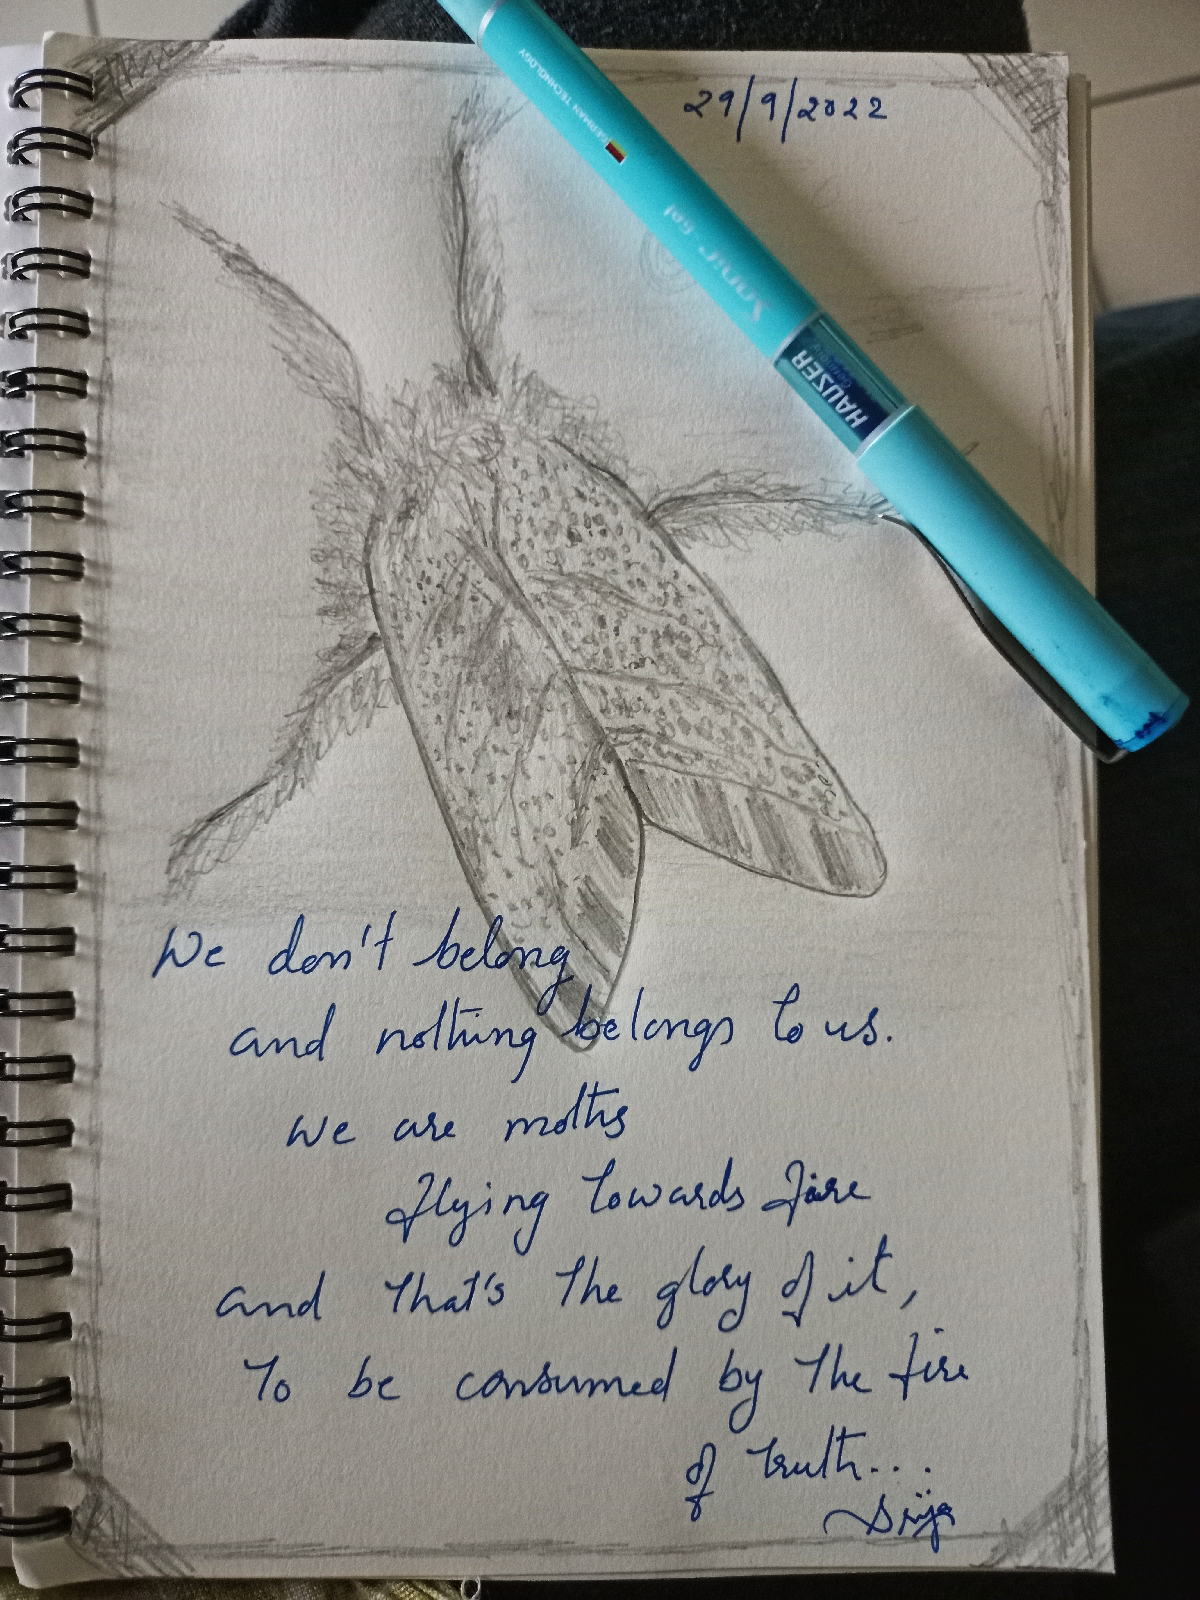 29/9/2022
GERMAN TECHNOLOGY
Sonic Gel
HAUSER
GERMANY
We don't belong
and nothing belongs to us.
We are moths
flying towards fire
and that's the glory of it,
To be consumed by the fire
of truth...
Srija